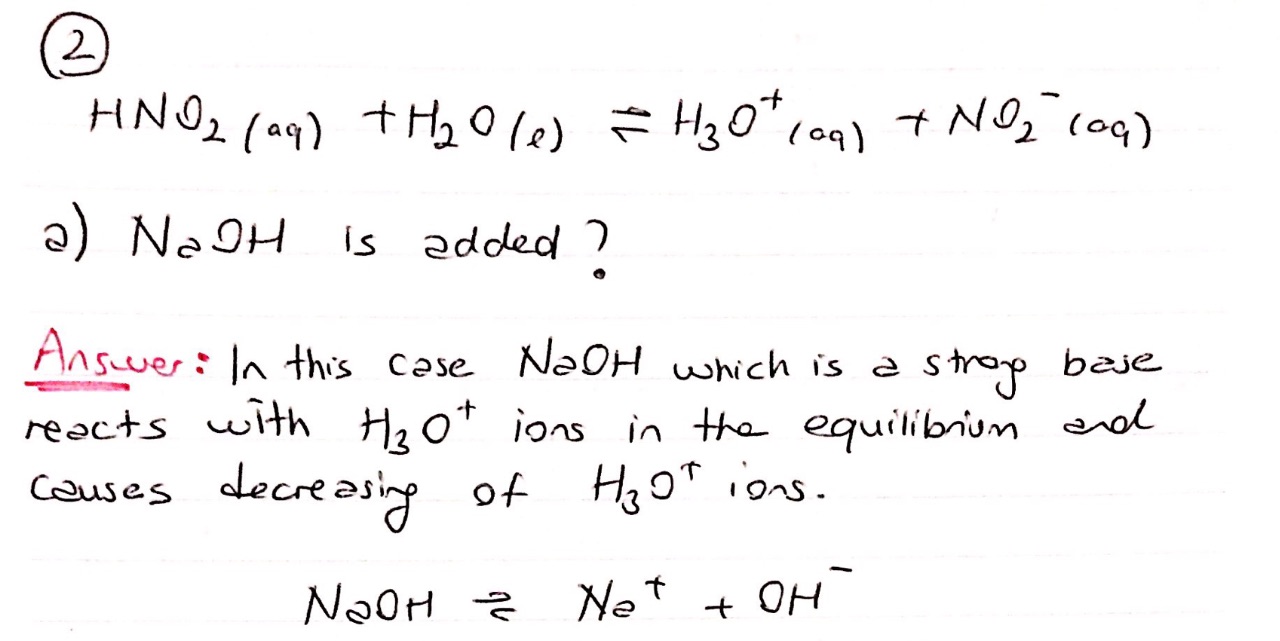 2
HNO₂(aq) + H₂O(l) ⇌ H₃O⁺(aq) + NO₂⁻(aq)
a) NaOH is added?
Answer: In this case NaOH which is a strong base
reacts with H₃O⁺ ions in the equilibrium and
causes decreasing of H₃O⁺ ions.
NaOH ⇌ Na⁺ + OH⁻